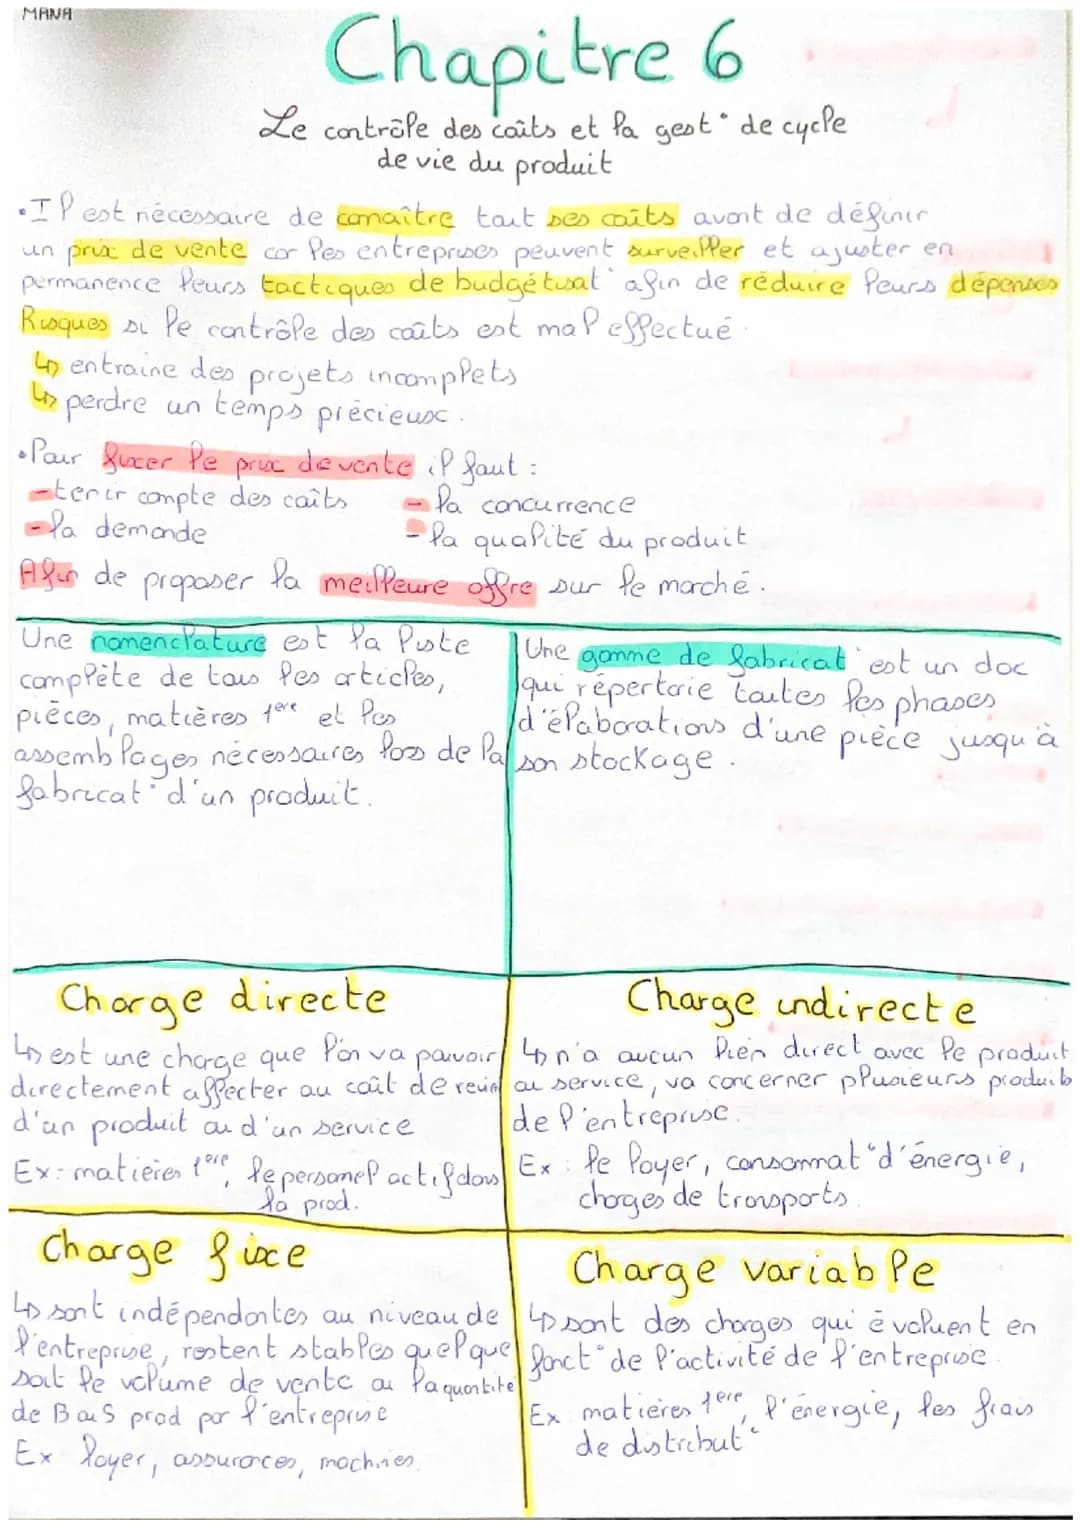 MANA
Chapitre 6
Le contrôle des coûts et la gest° de cycle
de vie du produit
• Il est nécessaire de connaître tout ses coûts avant de définir
un prix de vente car les entreprises peuvent surveiller et ajuster en
permanence leurs tactiques de budgétisat° afin de réduire leurs dépenses
Risques si le contrôle des coûts est mal effectué.
↳ entraine des projets incomplets
↳ perdre un temps précieux.
• Pour fixer le prix de vente il faut :
- tenir compte des coûts
- la concurrence
- la demande
- la qualité du produit
Afin de proposer la meilleure offre sur le marché.
Une nomenclature est la liste
complète de tous les articles,
pièces, matières 1ère et les
assemblages nécessaires lors de la
fabricat° d'un produit.
Une gamme de fabricat° est un doc
qui répertorie toutes les phases
d'élaborations d'une pièce jusqu'à
son stockage.
Charge directe
↳ est une charge que l'on va pouvoir
directement affecter au coût de revin
d'un produit ou d'un service
Ex: matières 1ère, le personel actif dans
la prod.
Charge indirecte
↳ n'a aucun lien direct avec le produit
ou service, va concerner plusieurs produits
de l'entreprise.
Ex : le loyer, consommat° d'énergie,
charges de transports.
Charge fixe
↳ sont indépendantes au niveau de
l'entreprise, restent stables quelque
soit le volume de vente ou la quantité
de B ou S prod par l'entreprise
Ex loyer, assurances, machines.
Charge variable
↳ sont des charges qui évoluent en
fonct° de l'activité de l'entreprise.
Ex matières 1ère, l'énergie, les frais
de distribut°